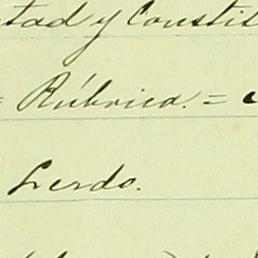 tad y Constit
= Rúbrica. =
Lerdo.